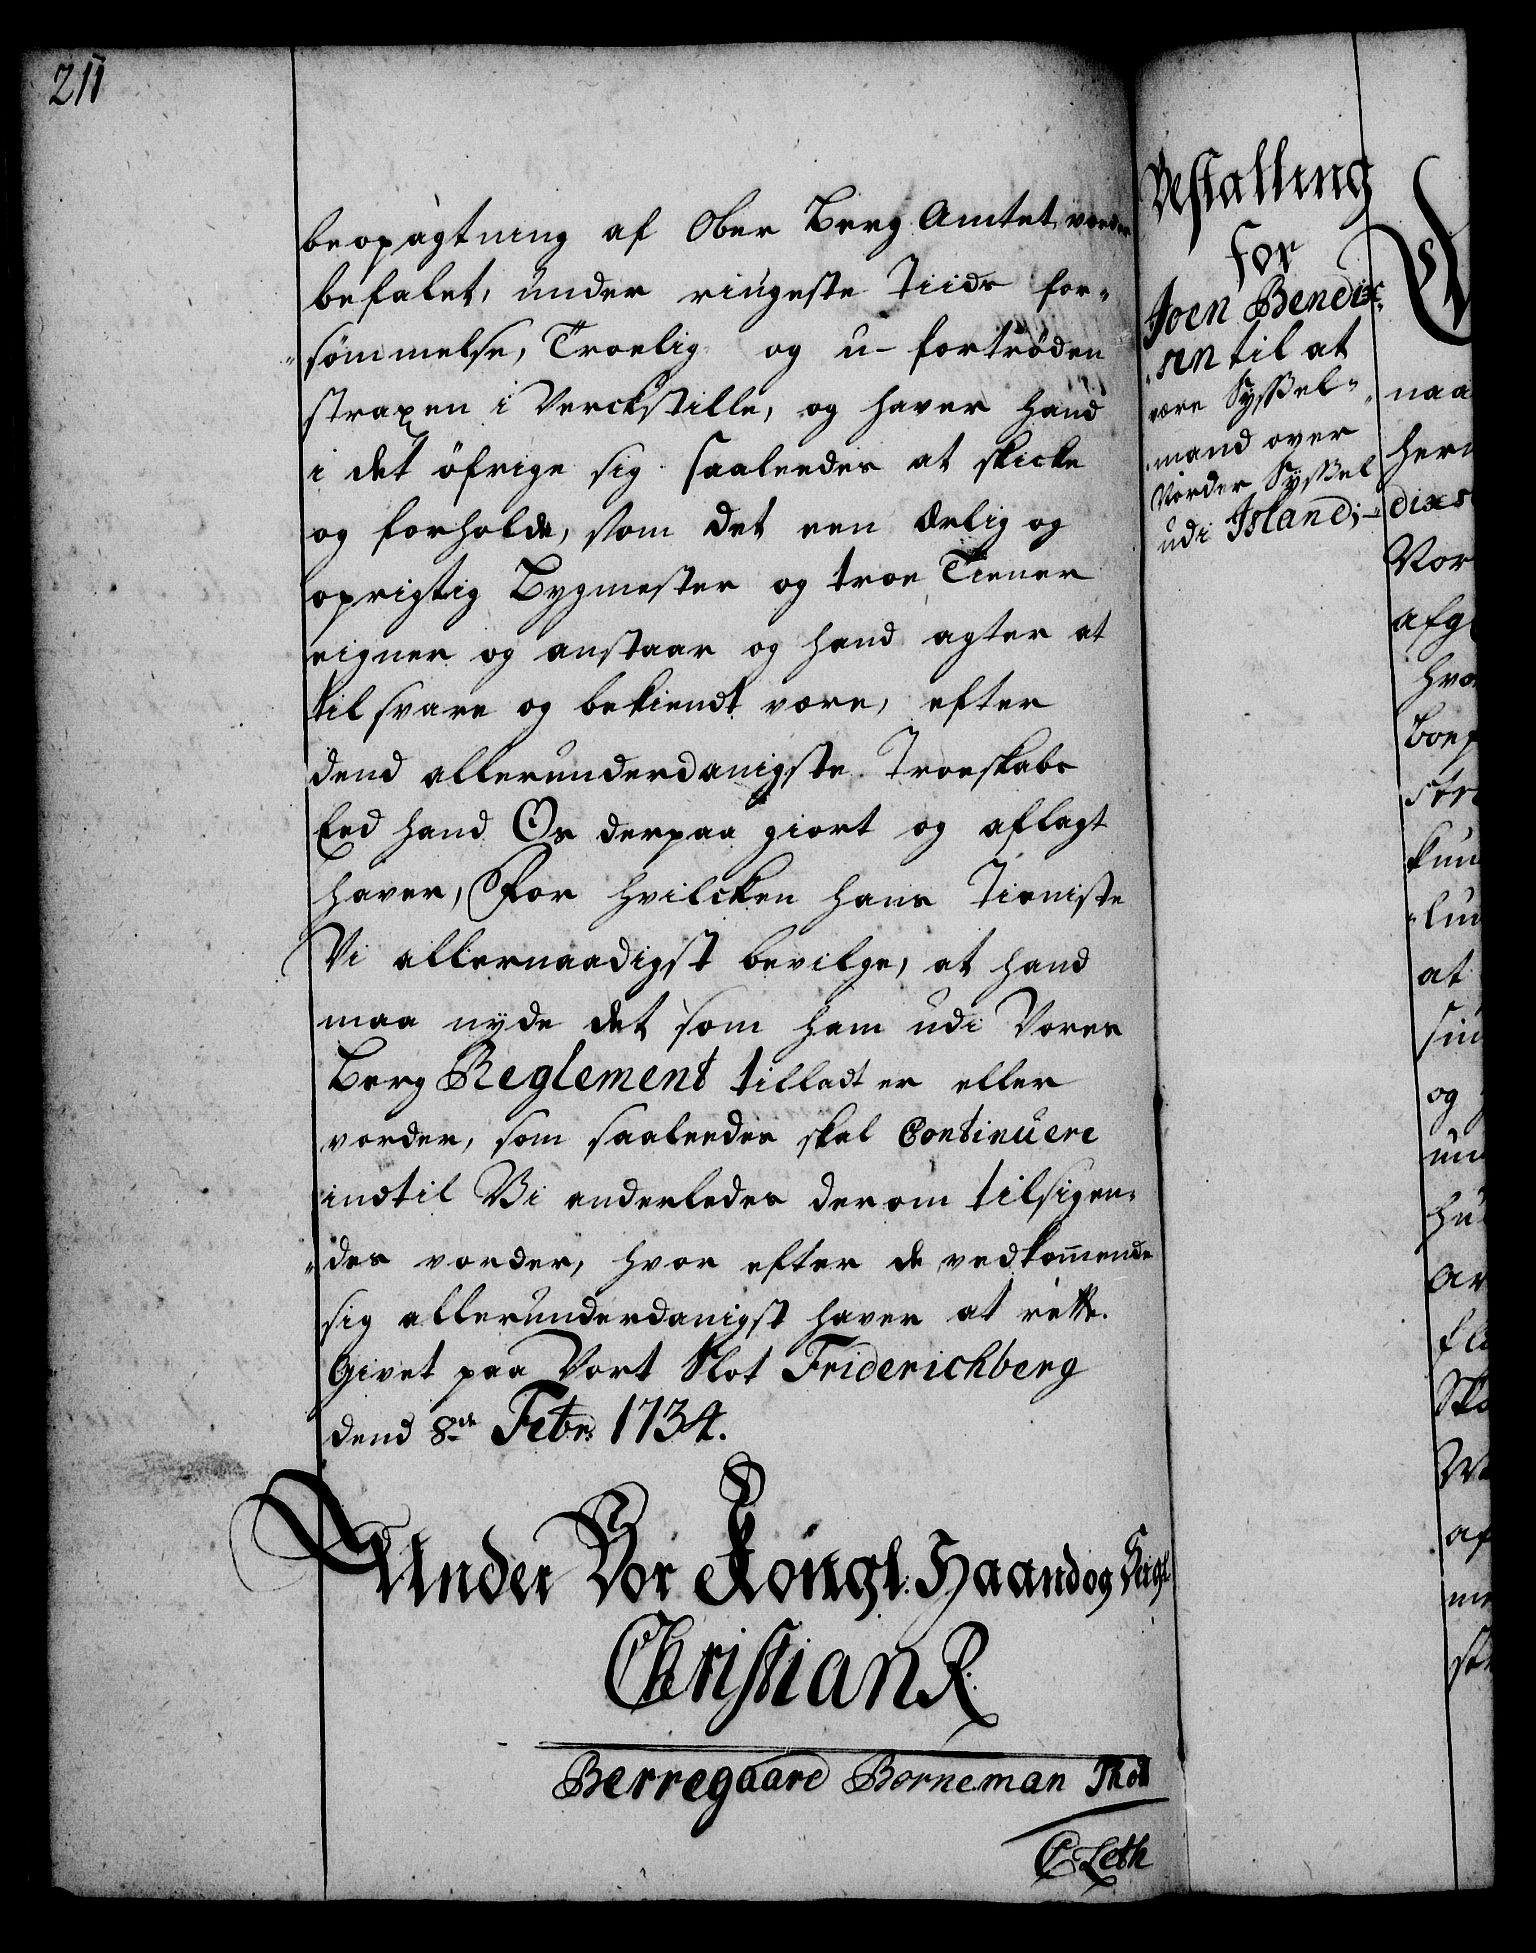 211
beopagtning af Ober Berg Amtet vorder
befalet, under ringeste Tiids for-
"sömmelse, Troelig og u-fortröden
straxen i Verckstille, og haver hand
i det öfrige sig saaleedes at skicke
og forholde, som det een Ærlig og
oprigtig Bygmester og troe Tiener
eigner og anstaar og hand agter at
tilsvare og bekiendt være, efter
dend allerunderdanigste Troeskabs
Eed hand Os derpaa giort og aflagt
haver, For hvilcken hans Tieniste
Vi allernaadigst bevilge, at hand
maa nyde det som ham udi Vores
Berg Reglement tilladt er eller
vorder, som saaleedes skal Continuere
indtil Vi anderledes derom tilsigen-
"des vorder, hvor efter de vedkommende
sig allerunderdanigst haver at rette.
Givet paa Vort Slot Friderichberg
dend 8de Febr: 1734.
Under Vor Kongl: Haand og Seigl
Christian R.
Berregaard Borneman Thott
C. Leth
Bestalling
for
Joen Bendix-
"sen til at
være Syssel-
"mand over
Norder Syssel
udi Island;-
naa
her
dixs
Vor
afg
hvo
boep
str
kun
"lun
at
sin
og
un
hu
ar
fl
Ska
af
me
st